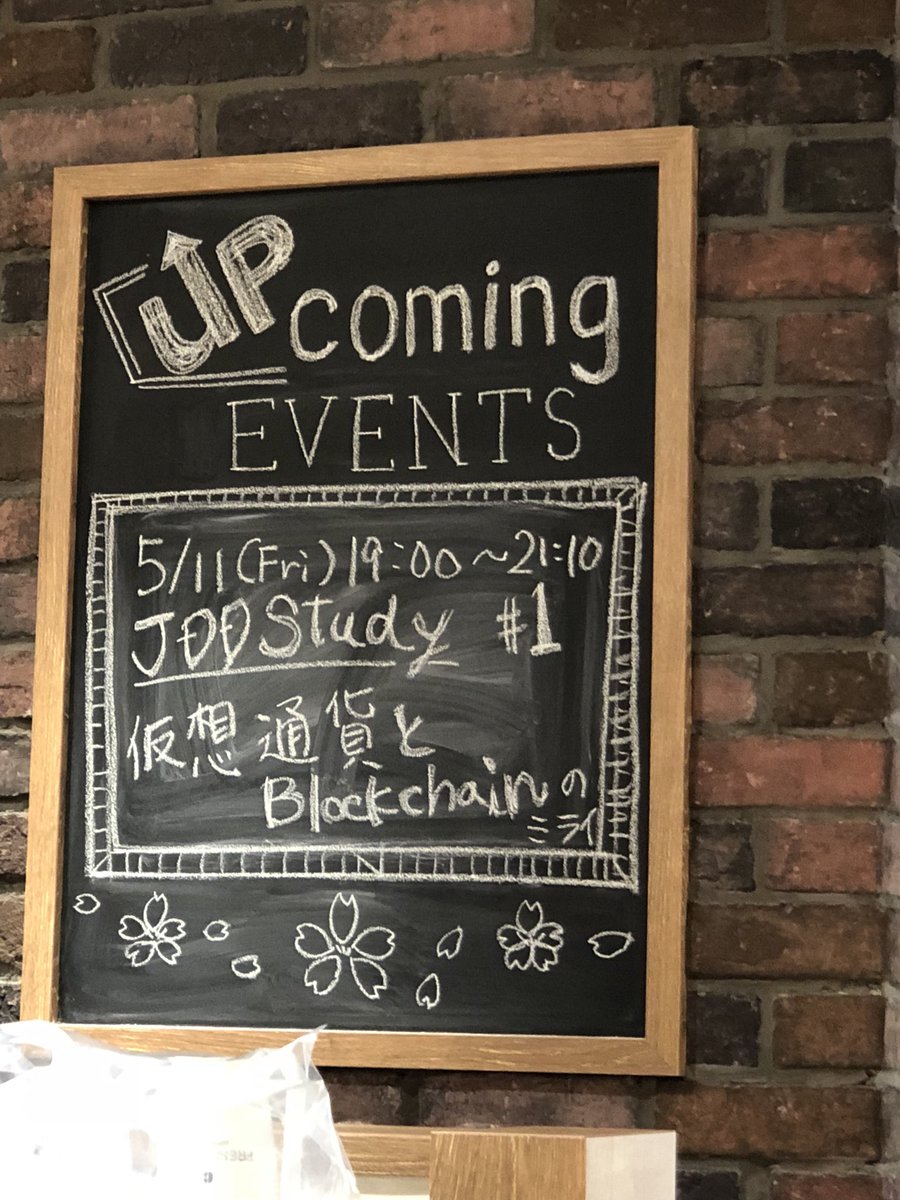 UPcoming
EVENTS
5/11(Fri)19:00~21:10
JDD Study #1
仮想通貨と
Blockchainの
ミライ